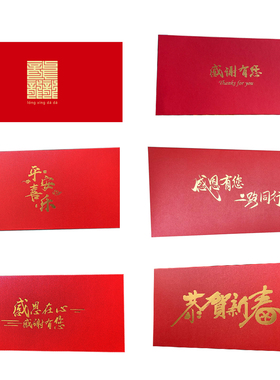 lóng xíng dá dá
感谢有您
Thanks for you
平安
喜乐
感恩有您
一路同行
感恩在心
感谢有您
恭贺新春